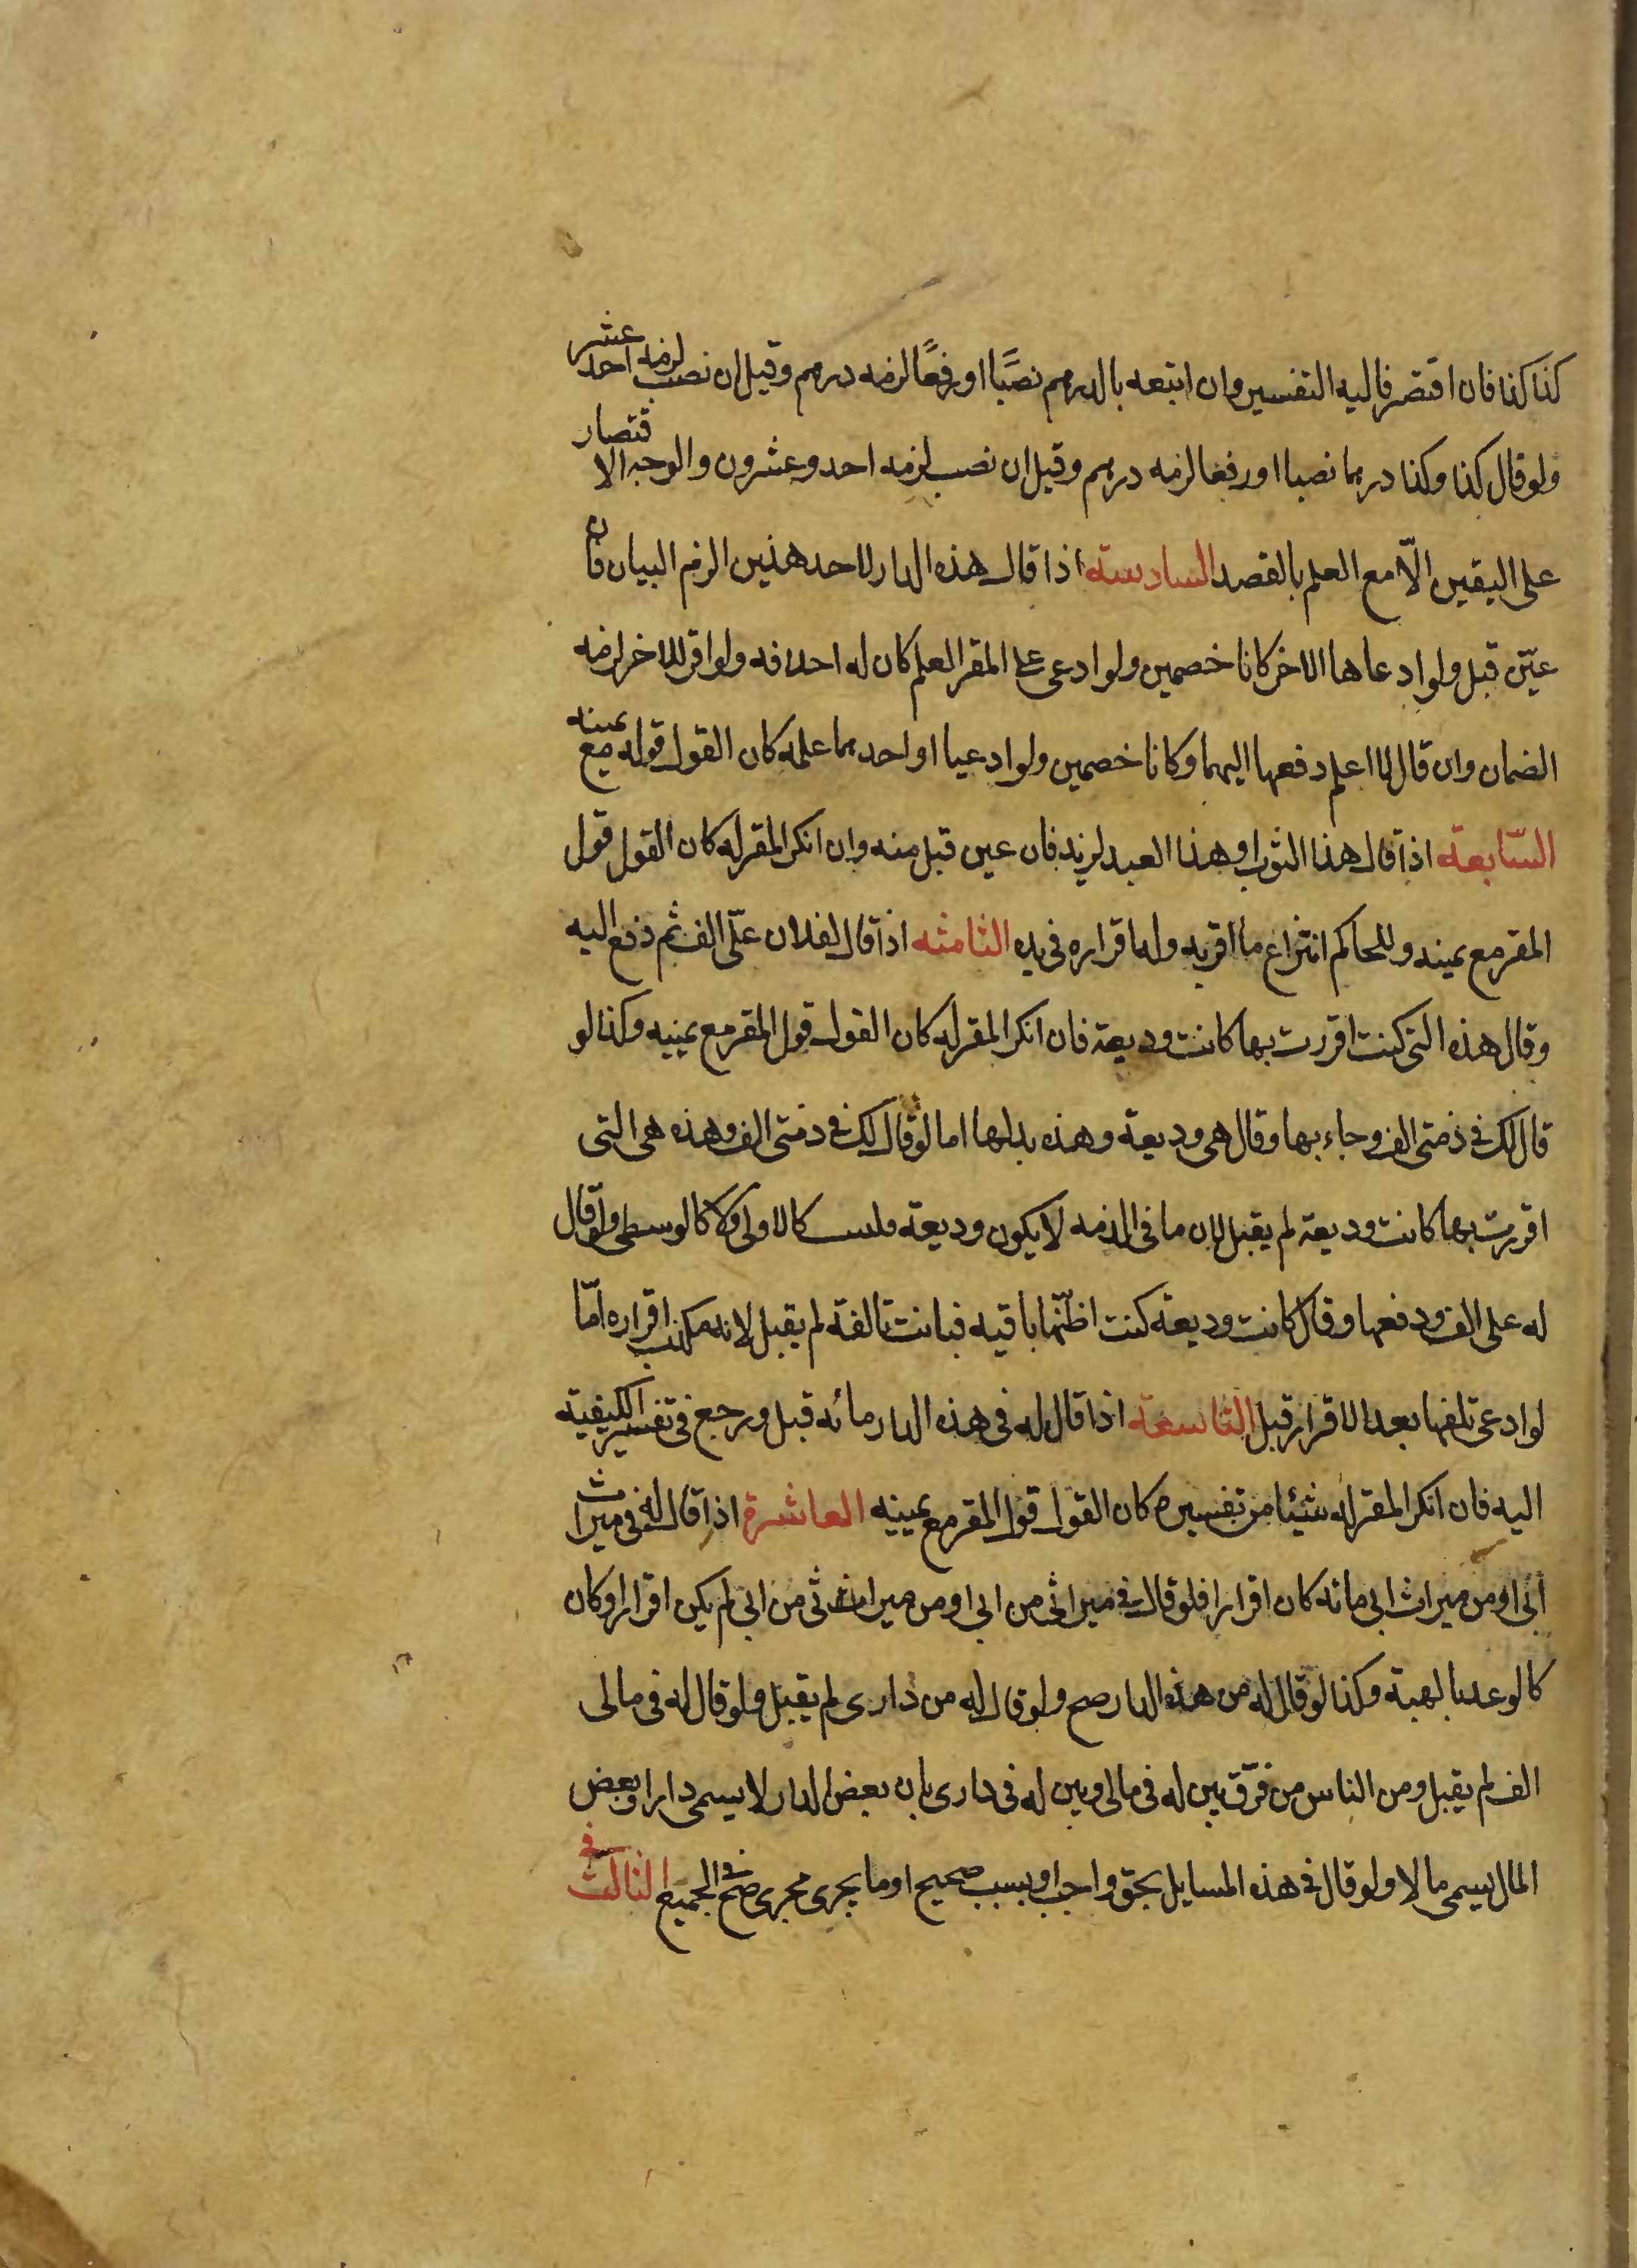 كذا كذا فان اقتصر فاليه التفسير وان اتبعه بالدرهم نصبًا او رفعًا لزمه درهم وقيل ان نصب لزمه احد عشر
ولو قال كذا وكذا درهما نصبا او رفعا لزمه درهم وقيل ان نصب لزمه احد وعشرون والوجه الاقتصار
على اليقين الّا مع العلم بالقصد السادسة اذا قال هذه الدار لاحد هذين الزم البيان فان
عيّن قبل ولو ادعاها الاخر كانا خصمين ولو ادعى على المقر العلم كان له احلافه ولو اقر للاخر لزمه
الضمان وان قال لا اعلم دفعها اليهما وكانا خصمين ولو ادعيا او احدهما علمه كان القول قوله مع يمينه
السّابعة اذا قال هذا الثوب او هذا العبد لزيد فان عين قبل منه وان انكر المقر له كان القول قول
المقر مع يمينه وللحاكم انتزاع ما اقر به وله اقراره في يده الثامنه اذا قال لفلان علّى الف ثم دفع اليه
وقال هذه التي كنت اقررت بها كانت وديعة فان انكر المقر له كان القول قول المقر مع يمينه وكذا لو
قال لك في ذمتى الف وجاء بها وقال هى وديعة وهذه بدلها اما لو قال لك في ذمتى الف وهذه هى التى
اقررت بها كانت وديعة لم يقبل لان ما فى الذمه لا يكون وديعة فليست كالاولى ولا كالوسطى ولو قال
له على الف ودفعها وقال كانت وديعة كنت اظنّها باقيه فبانت تالفة لم يقبل لانه مكذب اقراره امّا
لو ادعى تلفها بعد الاقرار قبل التاسعة اذا قال له فى هذه الدار مائه قبل ورجع في تفسير الكيفية
اليه فان انكر المقر له شيئا من تفسيره كان القول قول المقر مع يمينه العاشرة اذا قال له في ميراث
أبى او من ميراث ابى مائه كان اقرارا فلو قال في ميراثى من ابى او من ميراثى من ابى لم يكن اقرارا وكان
كالوعد بالهبة وكذا لو قال له من هذه الدار صح ولو قال له من دارى لم يقبل ولو قال له فى مالى
الف لم يقبل ومن الناس من فرّق بين له فى مالى وبين له فى دارى بان بعض الدار لا يسمى دارا وبعض
المال يسمى مالا ولو قال في هذه المسايل بحق واجب او بسبب صحيح او ما يجرى مجرى صح في الجميع الثالث في